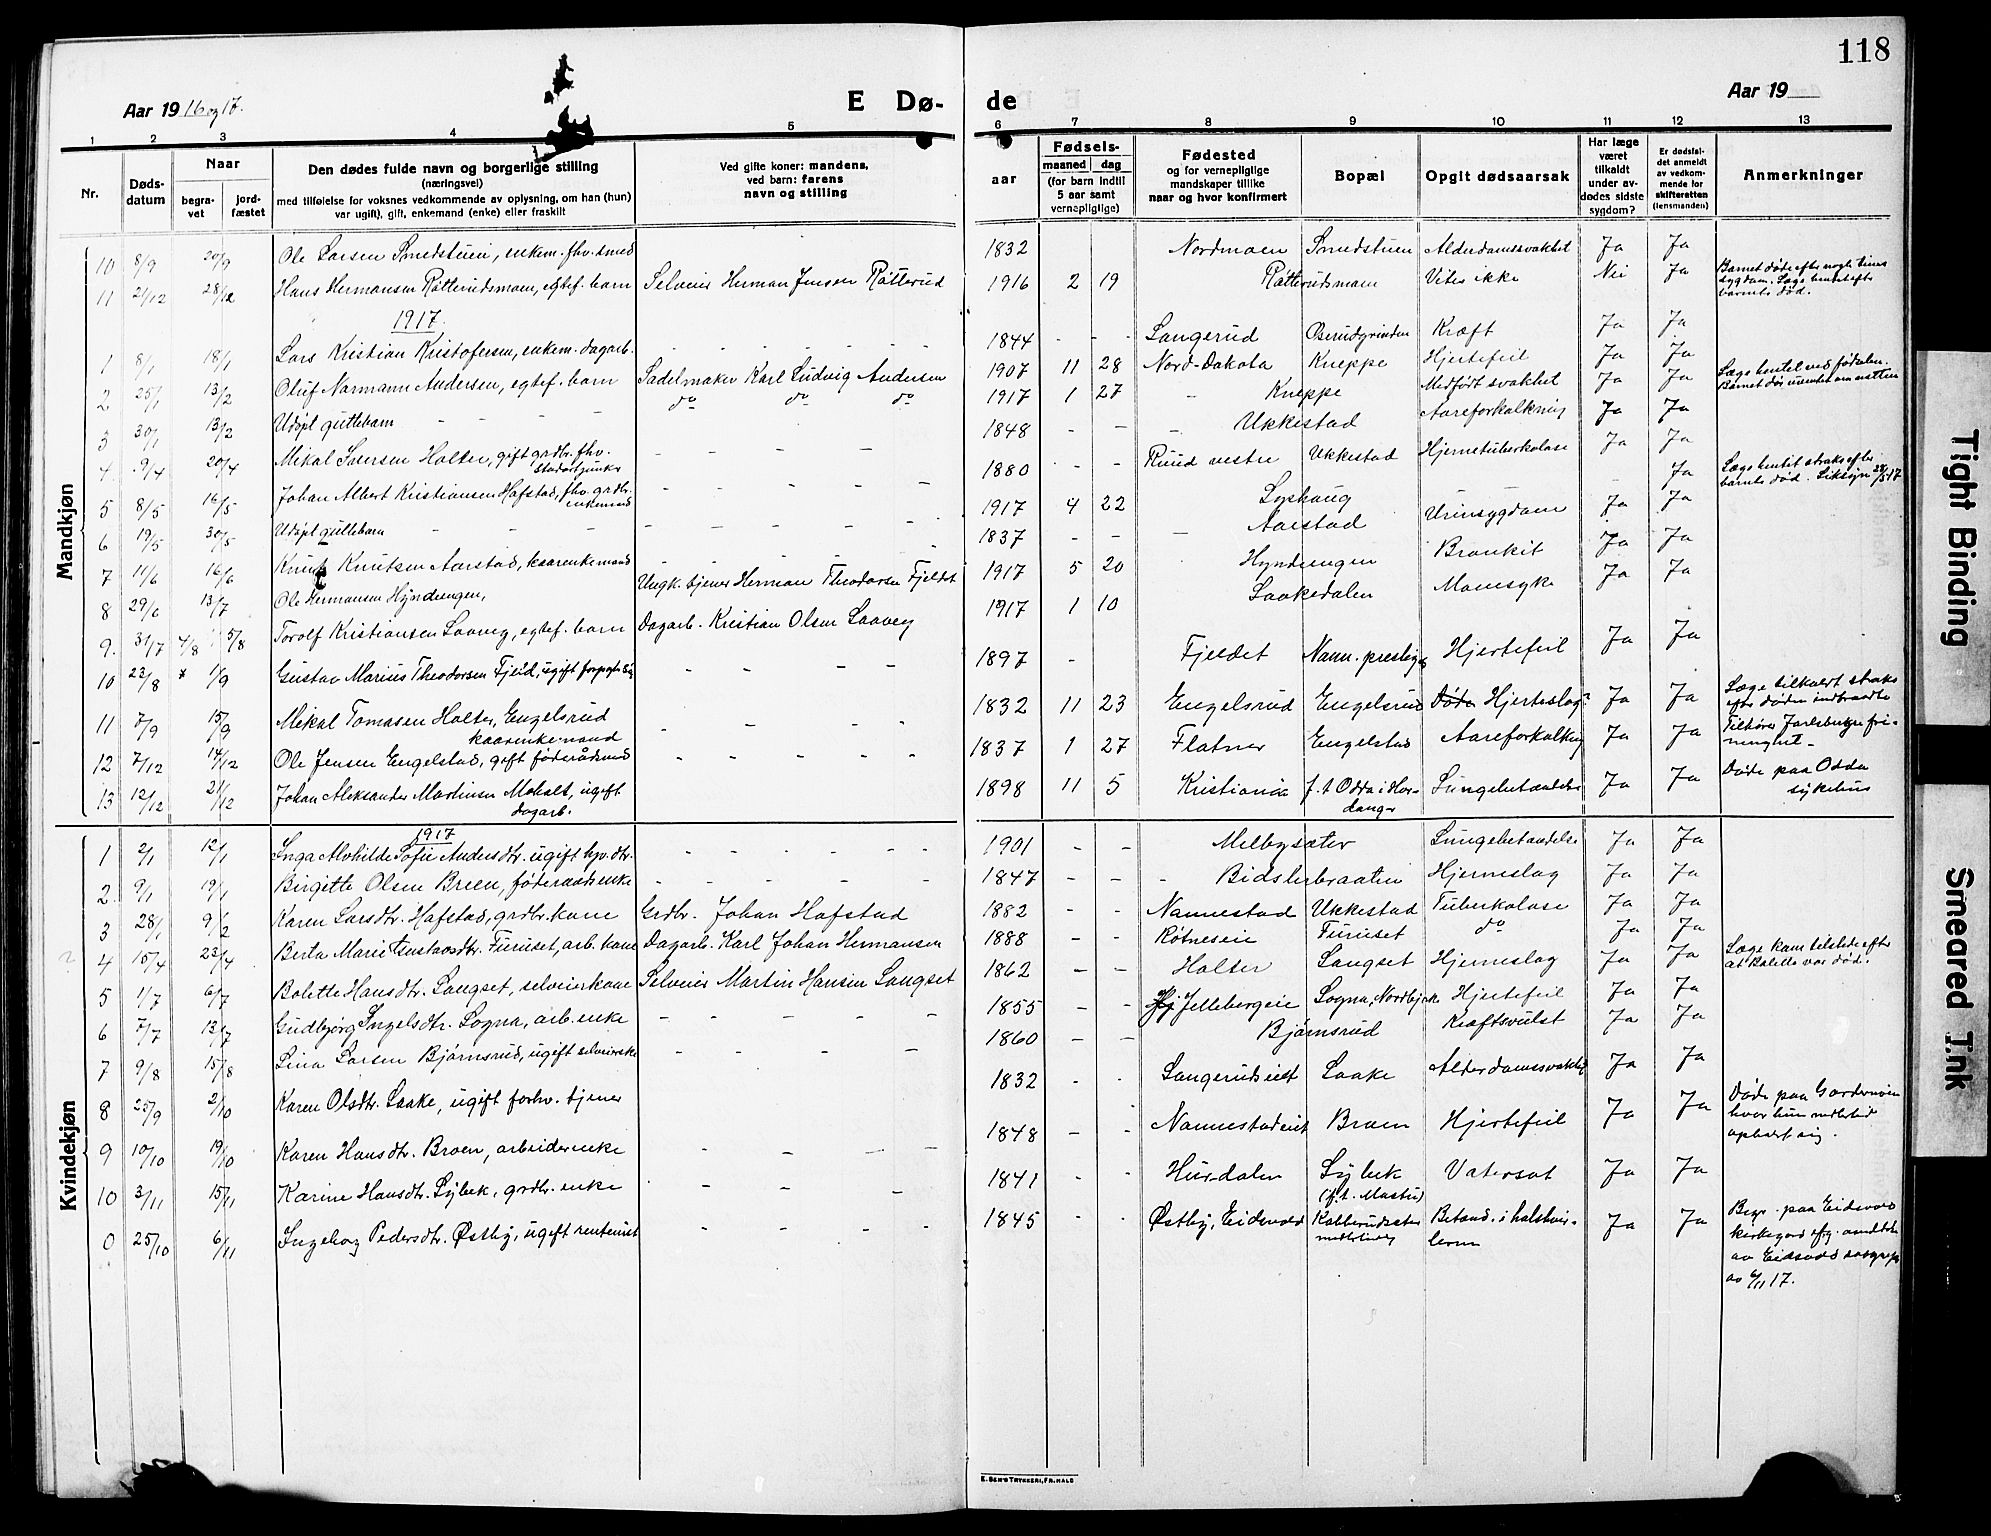 118
Aar 1916 og 17.
E Dø-
de
Aar 19
1 2 3 4 5 6 7 8 9 10 11 12 13
Nr.
Døds-
datum
Naar
begra-
vet
jord-
fæstet
Den dødes fulde navn og borgerlige stilling
(næringsvei)
med tilføielse for voksnes vedkommende av oplysning, om han (hun)
var ugift), gift, enkemand (enke) eller fraskilt
Ved gifte koner: mandens,
ved barn: farens
navn og stilling
aar
Fødsels-
maaned dag
(for barn indtil
5 aar samt
vernepligtige)
Fødested
og for vernepligtige
mandskaper tillike
naar og hvor konfirmert
Bopæl
Opgit dødsaarsak
Har læge
været
tilkaldt
under av-
dødes sidste
sygdom?
Er dødsfal-
det anmeldt
av vedkom-
mende for
skifteretten
(lensmanden)
Anmerkninger
Mandkjøn
10 8/9 20/9 Ole Larsen Smedstuen, enkem. fhv. smed 1832 Nordmoen Smedstuen Alderdomssvakhet Ja Ja
11 21/12 28/12 Hans Hermansen Røtterudsmoen, egtef. barn Selveier Herman Jensen Røtterud 1916 2 19 Røtterudsmoen Vites ikke Nei Ja Barnet døde efter nogle timers
sygdom. Læge hentet efter
barnets død.
1917.
1 8/1 18/1 Lars Kristian Kristofersen, enkem. dagarb. - - - - - 1844 - - Langerud Oserudgrinden Kræft Ja Ja
2 25/1 13/2 Oluf Normann Andersen, egtef. barn Sadelmaker Karl Ludvig Andersen 1907 11 28 Nord-Dakota Kneppe Hjertefeil Ja Ja
3 30/1 13/2 Udøpt guttebarn - - - do do do 1917 1 27 - Kneppe Medfødt svakhet Ja Ja Læge hentet ved fødselen.
Barnet døs uventet om natten
4 9/4 20/4 Mikal Iversen Holter, gift grdbr. fhv.
- - - - 1848 - - - Ukkestad Aareforkalkning Ja Ja
5 8/5 16/5 Johan Albert Kristiansen Hafstad, fhv. grdbr.
enkemand - - - - - 1880 - - Ruud vestre Ukkestad Hjernetuberkulose Ja Ja
6 19/5 30/5 Udøpt guttebarn - - - - - - - - 1917 4 22 Lyshaug - Ja Læge hentet straks efter
barnets død. Liksyn 22/5 17
7 11/6 16/6 Knut Knutsen Aarstad, kaarenkemand - - - - - 1837 - - - Aarstad Urinsygdom Ja Ja
8 29/6 13/7 Ole Hermansen Hyndeengen, Ungk. tjener Herman Theodorsen Fjeldet 1917 5 20 Hyndeengen Bronkit Ja Ja
9. 31/7 4/8 5/8 Torolf Kristiansen Laaveg, egtef. barn Dagarb. Kristian Olsen Laaveg 1917 1 10 Laakedalen Ja Ja
10 23/8 * 1/9 Gustav Marius Theodorsen Fjeld, ugift - - - - 1897 - Fjeldet Nann. prestegd. Hjertefeil Ja Ja
11 7/9 15/9 Mikal Tomasen Holter, Engelsrud
kaarenkemand - - - - 1832 11 23 Engelsrud Engelsrud Hjerteslag? Ja Ja Læge tilkaldt straks
efter døden indtraadte
12 7/12 14/12 Ole Jensen Engelstad, gift føderaadsmd - - - - - 1837 1 27 Flatner Engelstad Aareforkalkng Ja Ja Tilhører Jarlsberg fri-
mnighet.
13 12/12 21/12 Johan Aleksander Martinsen Moholt, ugift
dagarb. 1898 11 5 Kristiania f. t. Odda i Har-
danger Lungebetændelse Ja Ja Døde paa Odda
sykehus
Kvindekjøn
1917
1 2/1 12/1 Inga Mohilde Sofie Andersdtr. ugift hjv. dtr. - - - - - 1901 - - Melbysæter Lungebetændelse Ja Ja
2. 9/1 19/1 Birgitte Olsen Breen, føderaadsenke - - - - - - 1847 - - - Bidslerbraaten Hjerneslag Ja Ja
3 28/1 9/2 Karen Larsdtr. Hafstad, grdbr. kone Grdbr. Johan Hafstad 1882 - - Nannestad Ukkestad Tuberkulose Ja Ja
4 15/4 23/4 Berta Marie Gustavsdtr. Furuset, arb. kone Dagarb. Karl Johan Hermansen 1888 - - Røtneseie Furuset do Ja Ja
5 1/7 6/7 Bolette Hansdtr. Langset, selveierkone Selveier Martin Hansen Langset 1862 - - Holter Langset Hjerneslag Ja Ja Læge kom tilstede efter
at Bolette var død.
6 7/7 13/7 Gudbjørg Ingelsdtr. Sogna, arb. enke - - - - - 1855 - - Jellebergeie Sogna, Nordbyåk Hjertefeil Ja Ja
7 9/8 15/8 Lina Larsen Bjørnsrud, ugift - - - - 1860 - - Bjørnsrud Kræftsvulst Ja Ja
8 25/9 2/10 Karen Olsdtr. Laake, ugift forhv. tjener 1832 - - Langerudseiet Laake Alderdomssvakhet Ja Ja
9 10/10 19/10 Karen Hansdtr. Broen, arbeiderenke - - - - 1848 - - Nannestadeiet Broen Hjertefeil Ja Ja Døde paa Gardermoen
hvor hun midlertid
opholdt sig.
10 3/11 15/11 Karine Hansdtr. Lybek, grdbr. enke - - - 1841 - - Hurdalen Lybek
Vatersot Ja Ja
0 25/10 6/11 Ingeborg Pedersdtr. Østby, ugift rentenist - - - - 1845 - - Østby, Eidsvold Kolberudsæter
midlertidig Betænd. i halshvir-
lerne Ja Ja Begr. paa Eidsvold
kirkegaard efg. anmeldelse
av Eidsvold sogneprest
av 6/11 17.
E. Sem's Trykkeri, Fr.hald
Tight Binding
Smeared Ink